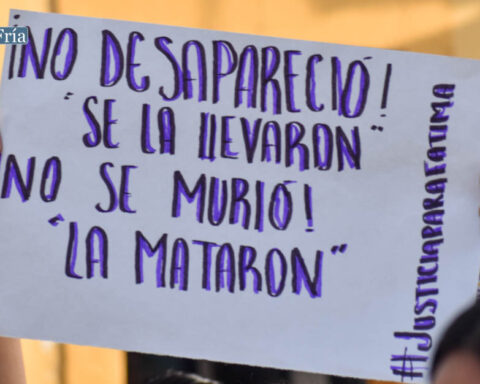 Fría
¡NO DESAPARECIÓ!
"SE LA LLEVARON"
NO SE MURIÓ!
"LA MATARON"
#JUSTICIAPARAFATIMA